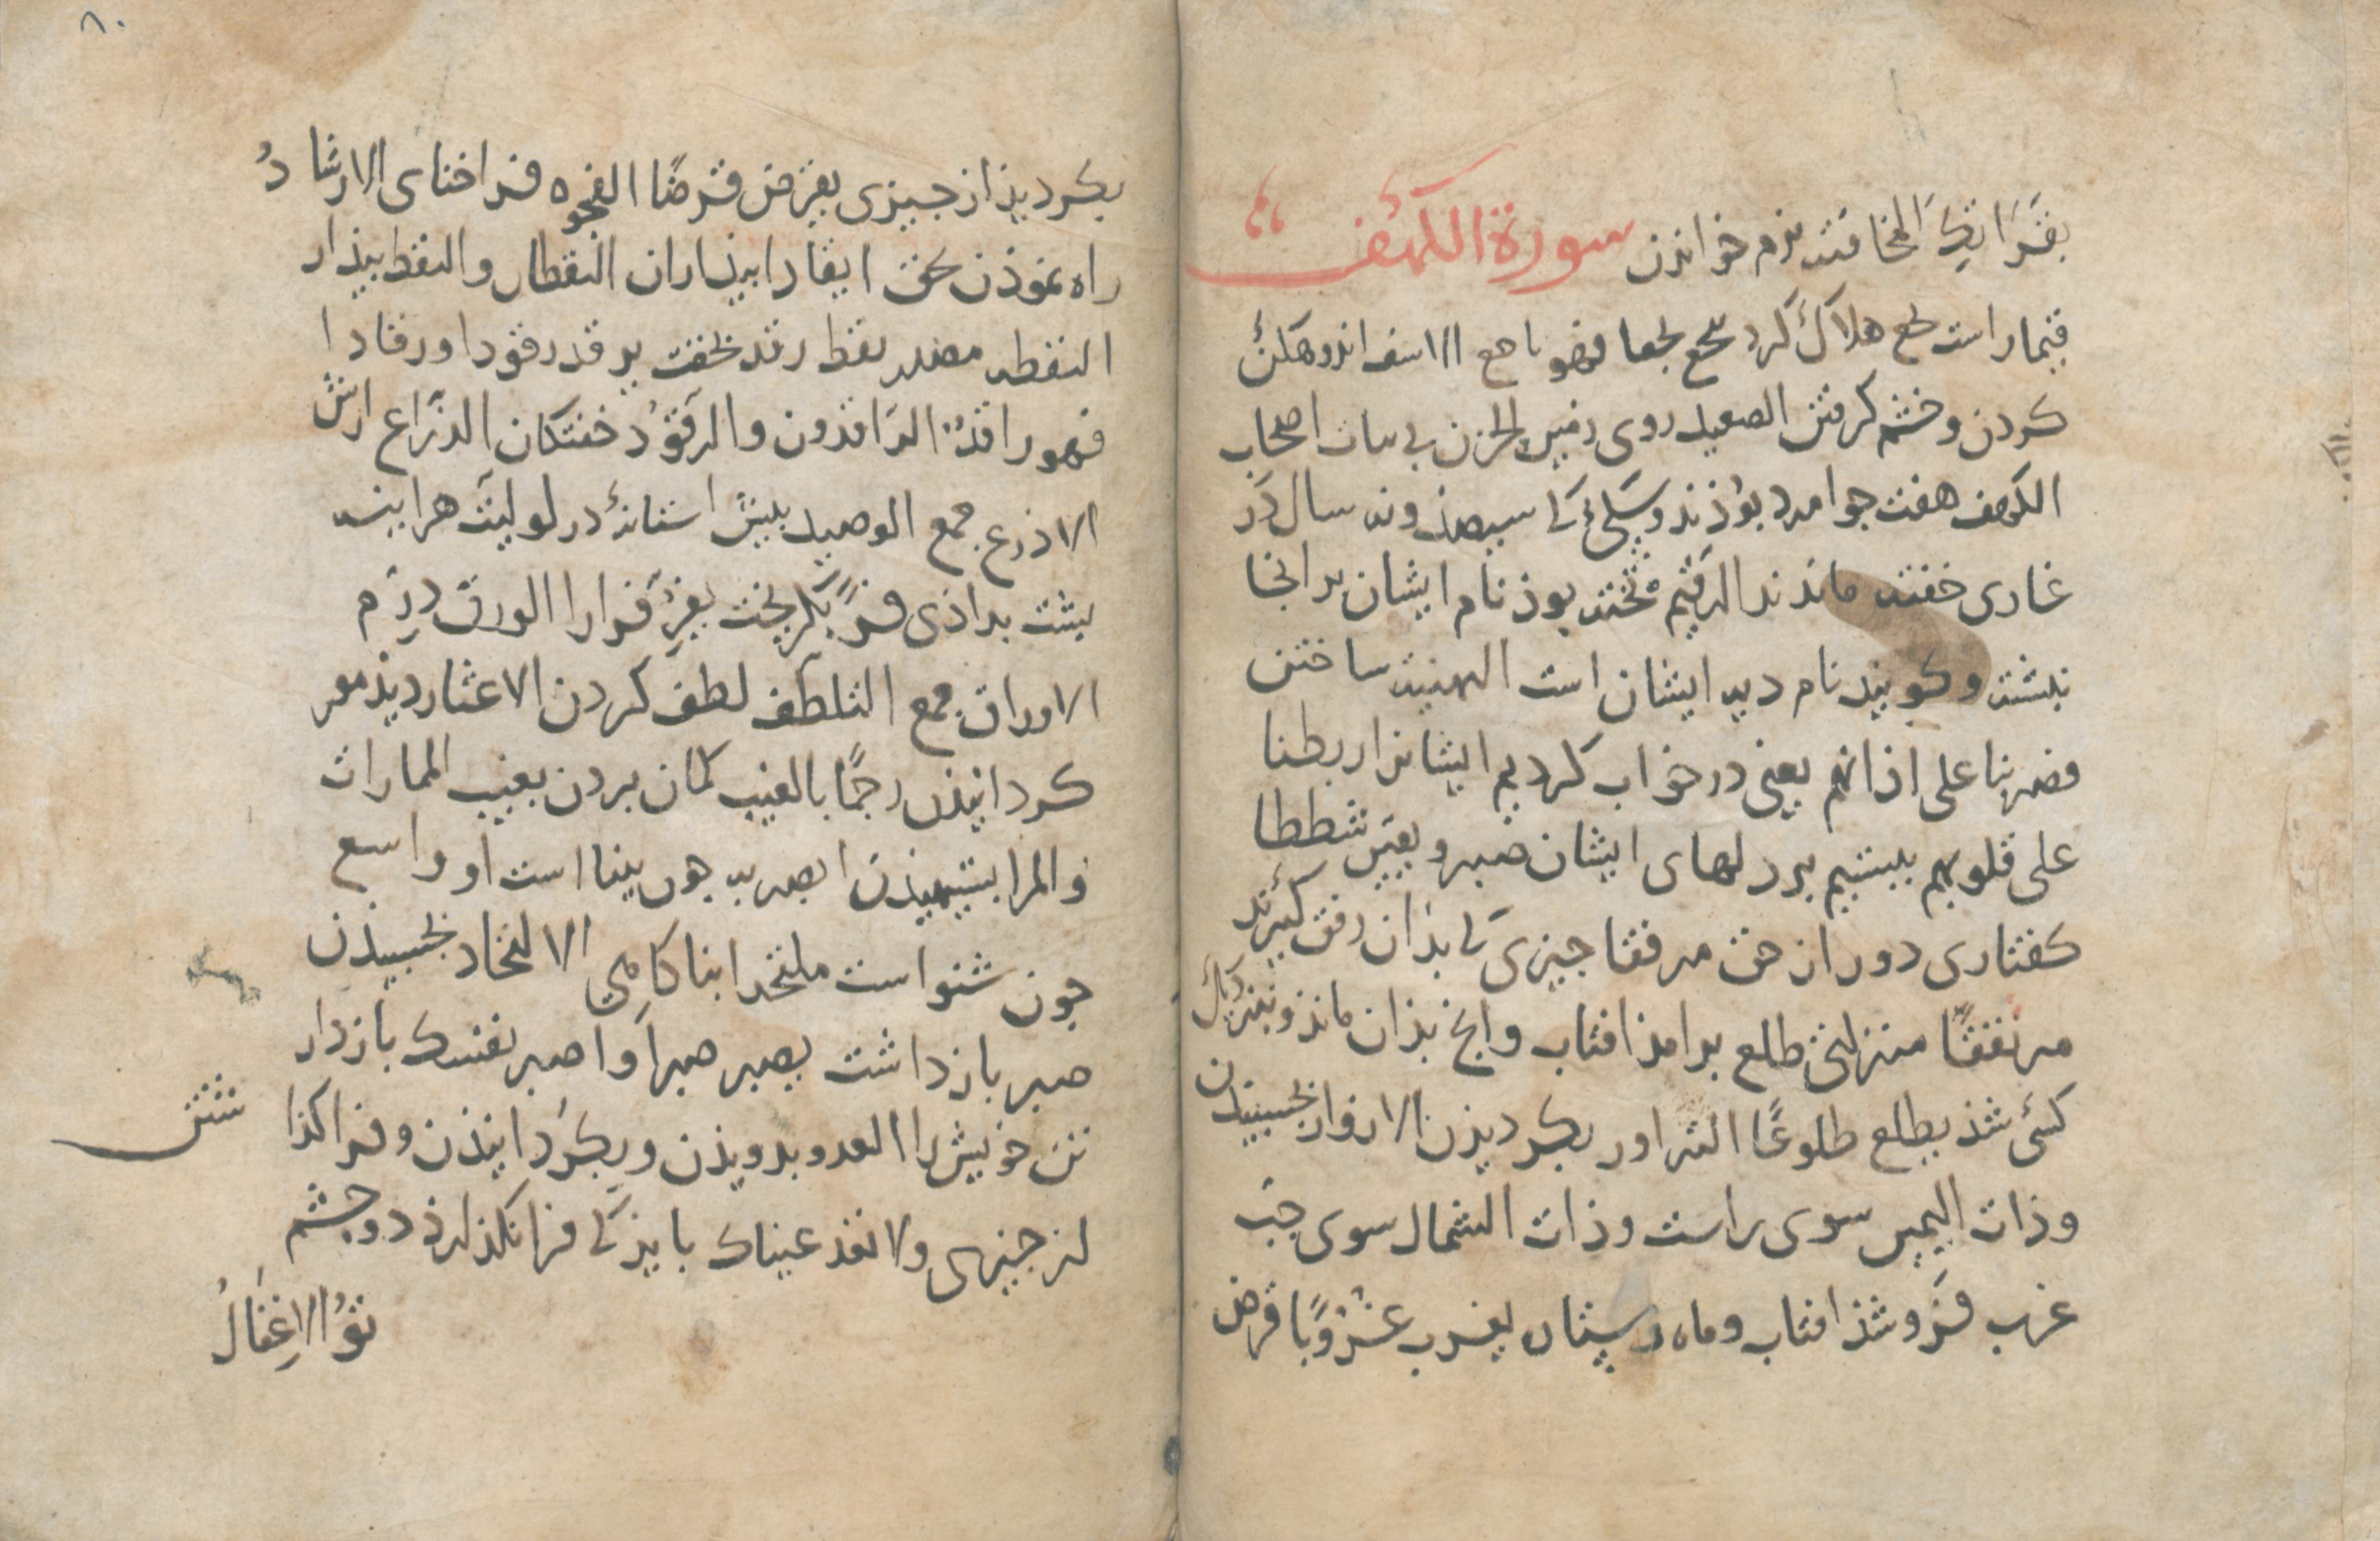 بقراتك المخافته نرم خواندن سورة الكهف
بخع هلاك كرد يبخع بخعا فهو باخع الاسف اندوهگن
كردن وخشم كرفتن الصعيد روى زمين الجرز بى نبات اصحاب
الكهف هفت جوامرد بوذند وسكى كى سيصذ ونه سال در
غارى خفته ماندند الرقيم تخته بوذ نام ايشان بر انجا
نبشته وكويند نام ديه ايشان است التهيئه ساختن
فضربنا على اذانهم يعنى در خواب كرديم ايشانرا ربطنا
على قلوبهم ببستيم بر دلهاى ايشان صبر ويقين شططا
كفتارى دور از حق مرفقا جيزى كى بذان رفق كيرند
مرتفقا منزلتى طلع برامذ افتاب وانج بذان ماند
كسى شذ يطلع طلوعًا التزاور بكرديذن الازورار بخسبيذن
وذات اليمين سوى راست وذات الشمال سوى جب
غرب فروشذ افتاب وماه وستاره يغرب غروبًا قرض
٨٠
بكرديذ از جيزى يقرض قرضًا الفجوه فراخناى الارشاد
راه نموذن بحق ايقاظا بيذاران اليقظان واليقظ بيذار
اليقظه مصدر يقظ رقد بخفت يرقد رقودا ورقادا
فهو راقد الراقدون والرقود خفتكان الذراع ارش
الاذرع جمع الوصيد بيش استانهٔ در لوليت هراينه
بشت بداذى فر بكريخت يفر فرارا الورق درم
الاوراق جمع التلطف لطف كردن الاعثار ديذه‌ور
كردانيذن رجمًا بالغيب كمان بردن بغيب الممارات
والمرا بستيهيذن ابصر به جون بينا است او واسمع
جون شنوا است ملتحدا بناكاهى الالتحاد بخسبيذن
صبر بازداشت يصبر صبرا واصبر نفسك بازدار
تن خويش را العدو بدويذن وبكردانيذن وفراكذا شتن
از جيزى ولا تعد عيناك بايذ كى فرانكذارذ دو جشم
تو الاغفال